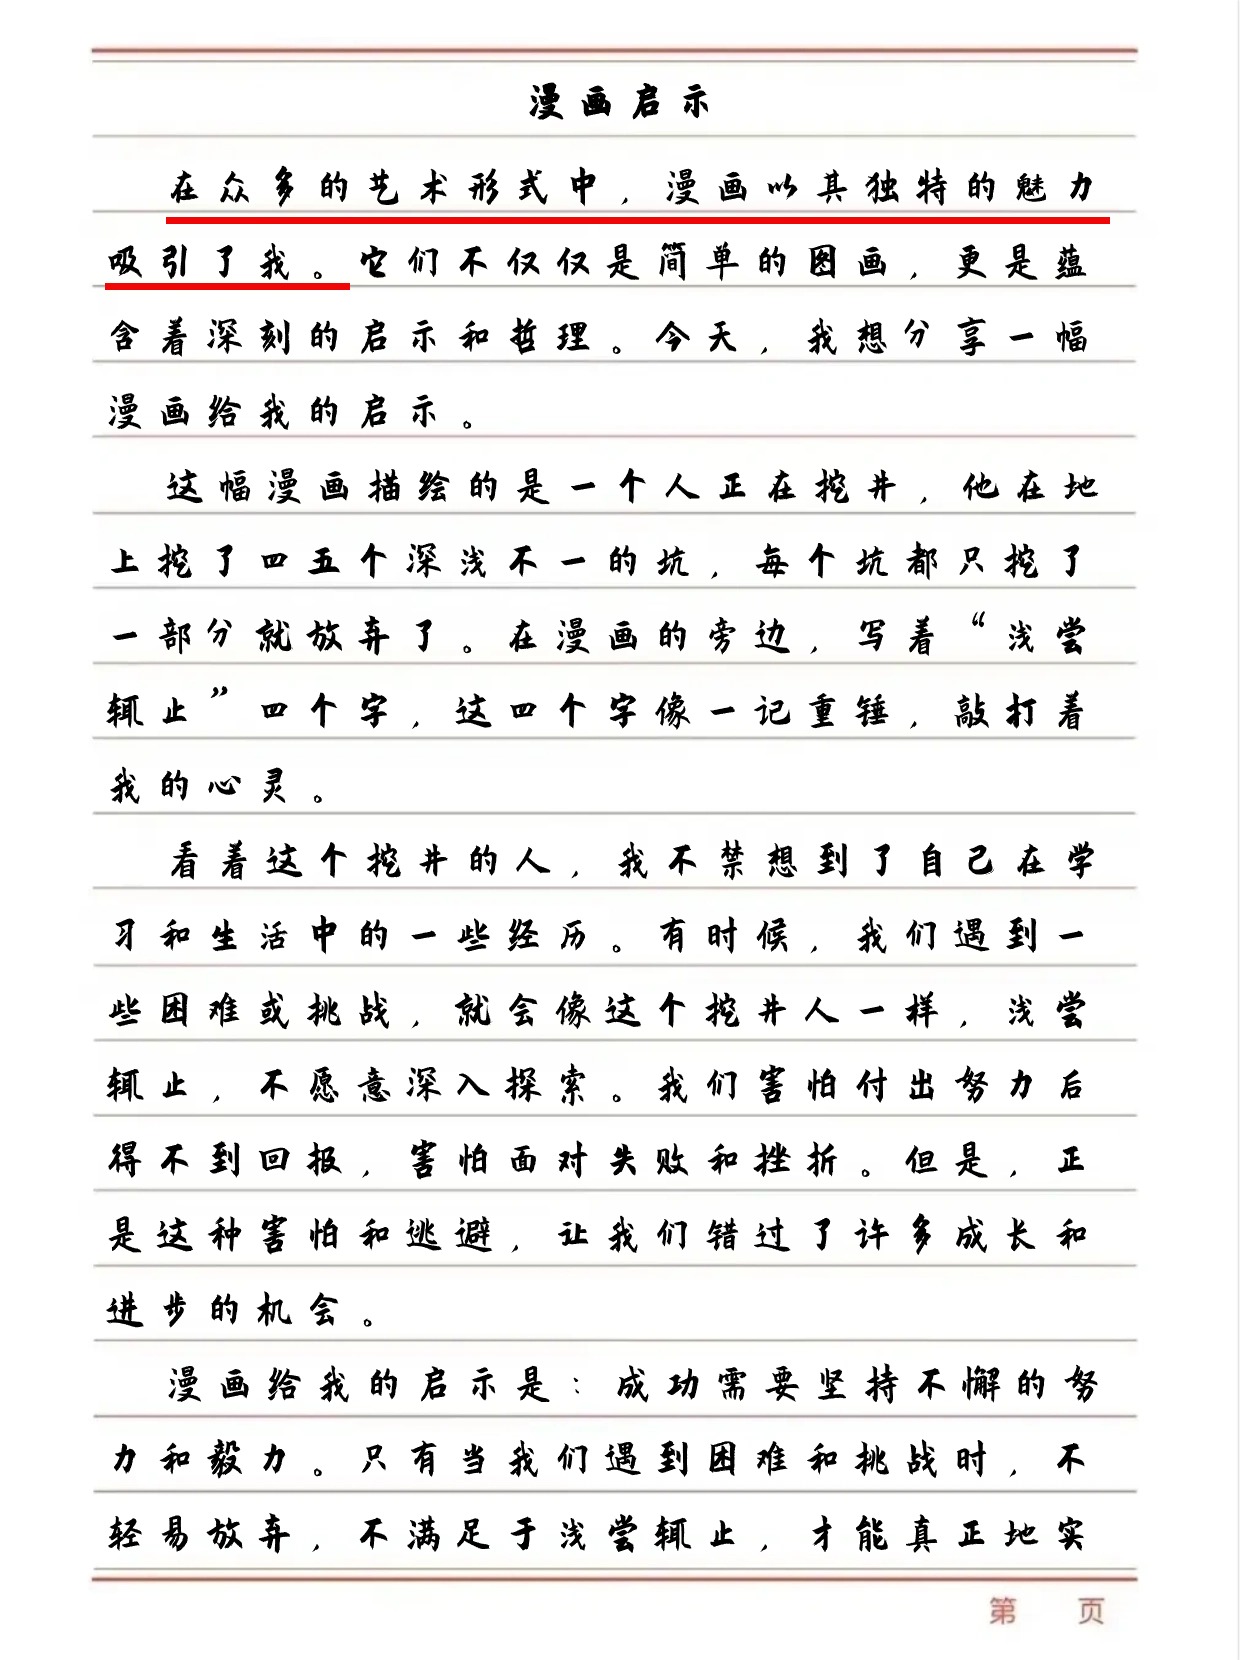 漫画启示
在众多的艺术形式中，漫画以其独特的魅力
吸引了我。它们不仅仅是简单的图画，更是蕴
含着深刻的启示和哲理。今天，我想分享一幅
漫画给我的启示。
这幅漫画描绘的是一个人正在挖井，他在地
上挖了四五个深浅不一的坑，每个坑都只挖了
一部分就放弃了。在漫画的旁边，写着“浅尝
辄止”四个字，这四个字像一记重锤，敲打着
我的心灵。
看着这个挖井的人，我不禁想到了自己在学
习和生活中的一些经历。有时候，我们遇到一
些困难或挑战，就会像这个挖井人一样，浅尝
辄止，不愿意深入探索。我们害怕付出努力后
得不到回报，害怕面对失败和挫折。但是，正
是这种害怕和逃避，让我们错过了许多成长和
进步的机会。
漫画给我的启示是：成功需要坚持不懈的努
力和毅力。只有当我们遇到困难和挑战时，不
轻易放弃，不满足于浅尝辄止，才能真正地实
第 页